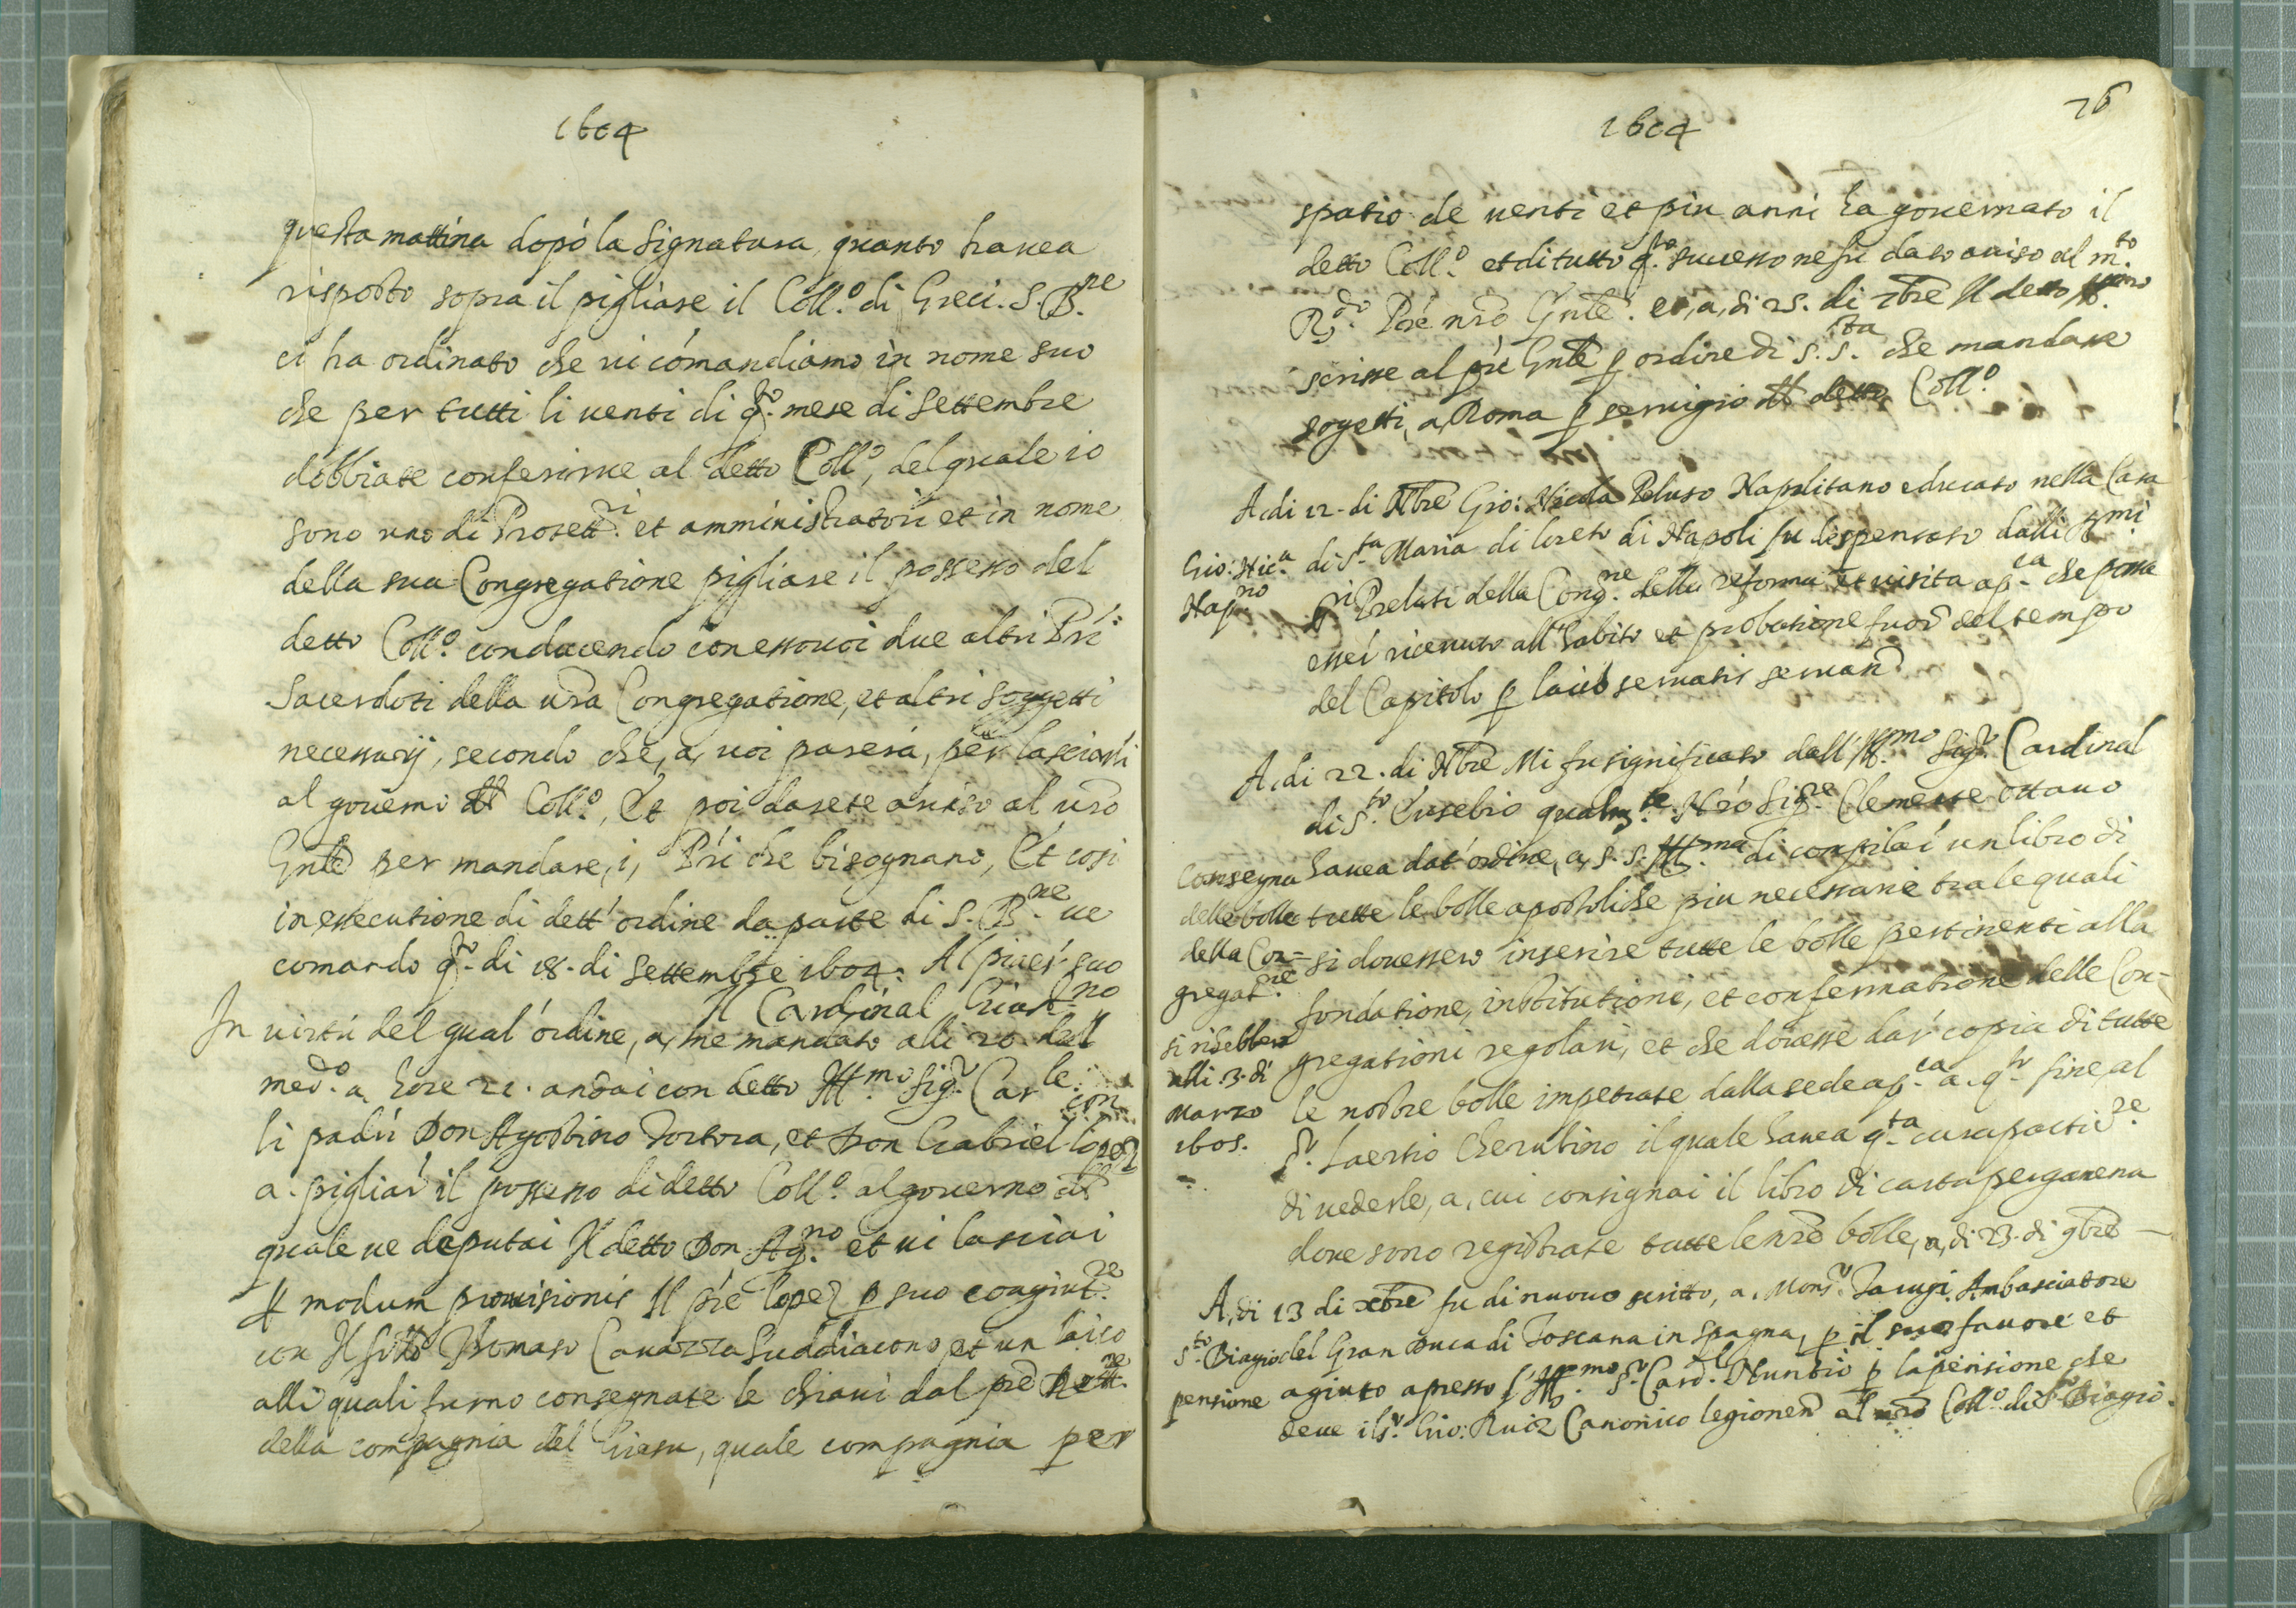 1604
questa mattina dopò la signatura, quanto havea
risposto sopra il pigliare il Coll.o di Greci. S. B.ne
ci ha ordinato che vi comandiamo in nome suo
che per tutti li venti di q.o mese di Settembre
dobbiate conferirve al detto Coll.o, del quale io
sono uno di Protett.ri et amministratori et in nome
della sua Congregatione pigliare il possesso del
detto Coll.o conducendo con esso voi due altri Pri
Sacerdoti della vra Congregatione, et altri soggetti
necessarij, secondo che, a, voi parerà, per lasciarli
al governo del Coll.o, Et poi darete aviso al vro
Gnle per mandare, i, Pri che bisognano, Et così
in essecutione di dett'ordine da parte di S. B.ne ve
comando q.o di 18. di Settembre 1604. Al piacer suo
Il Cardinal Giust.no
In virtù del qual'ordine, a, me mandato alli 20. del
med.o a hore 21. andai con detto Ill.mo Sig.r Car.le con
li padri Don Agostino Tortora, et Don Gabriel Lopez
a. pigliar il possesso di detto Coll.o al governo del
quale ve deputai Il detto Don Ag.no et vi lasciai
p modum provisionis Il pre Lopez p suo coagiut.re
con Il Thomaso Cavazza Suddiacono, et un laico
alli quali furno consegnate le chiavi dal pre
della compagnia del Giesu, quale compagnia per
76
1604
spatio de venti et più anni ha governato il
detto Coll.o et di tutto q.o successo ne fu dato aviso al m.to
R.do Pre nro Gnle. et, a, di 25. di 7bre Il detto
scrisse al pre Gnle p ordine di S. S.ta che mandasse
sogetti, a, Roma p servigio del detto Coll.o
A, di 12. di Nbre Gio: Nicola Peluso Napolitano educato nella Casa
Gio: Nic.a
Nap.no
di S.ta Maria di loreto di Napoli fu dispensato dalli Ill.mi
S.ri Prelati della Cong.ne della reforma et visita ap.ca che possa
esser ricevuto all'habito et probatione fuor del tempo
del Capitolo p laico servatis servand
A, di 22. di Nbre Mi fu significato dall'Ill.mo Sig.r Cardinal
di S.to Eusebio qualm.te Nro Sig.re Clemente Ottavo
havea dat'ordine, a, S. S. Ill.ma di compilar un libro di
Consegna
delle bolle
della Con=
gregat.ne
si rihebbero
alli. 3. di
Marzo
1605.
tutte le bolle apostoliche piu necessarie tra le quali
si dovessero inserire tutte le bolle pertinenti alla
fondatione, institutioni, et confermatione delle Con-
gregationi regolari, et che dovesse dar copia di tutte
le nostre bolle impetrate dalla sede ap.ca a. q.to fine, al
S.r Laertio Cherubino il quale havea q.ta cura
di vederle, a, cui consignai il libro di carta pergamena
dove sono registrate tutte le nre bolle, a, di 23. di 9bre —
A, di 13 di xbre fu di nuovo scritto, a, Mons.r Tarugi Ambasciatore
S.to Biagio
pensione
del Gran Duca di Toscana in Spagna, p il suo favore et
agiuto apresso l'Ill.mo S.r Card.l Nuntio p la pensione che
deve il S.r Gio: Ruiz Canonico legionen al nro Coll.o di S.to Biagio.